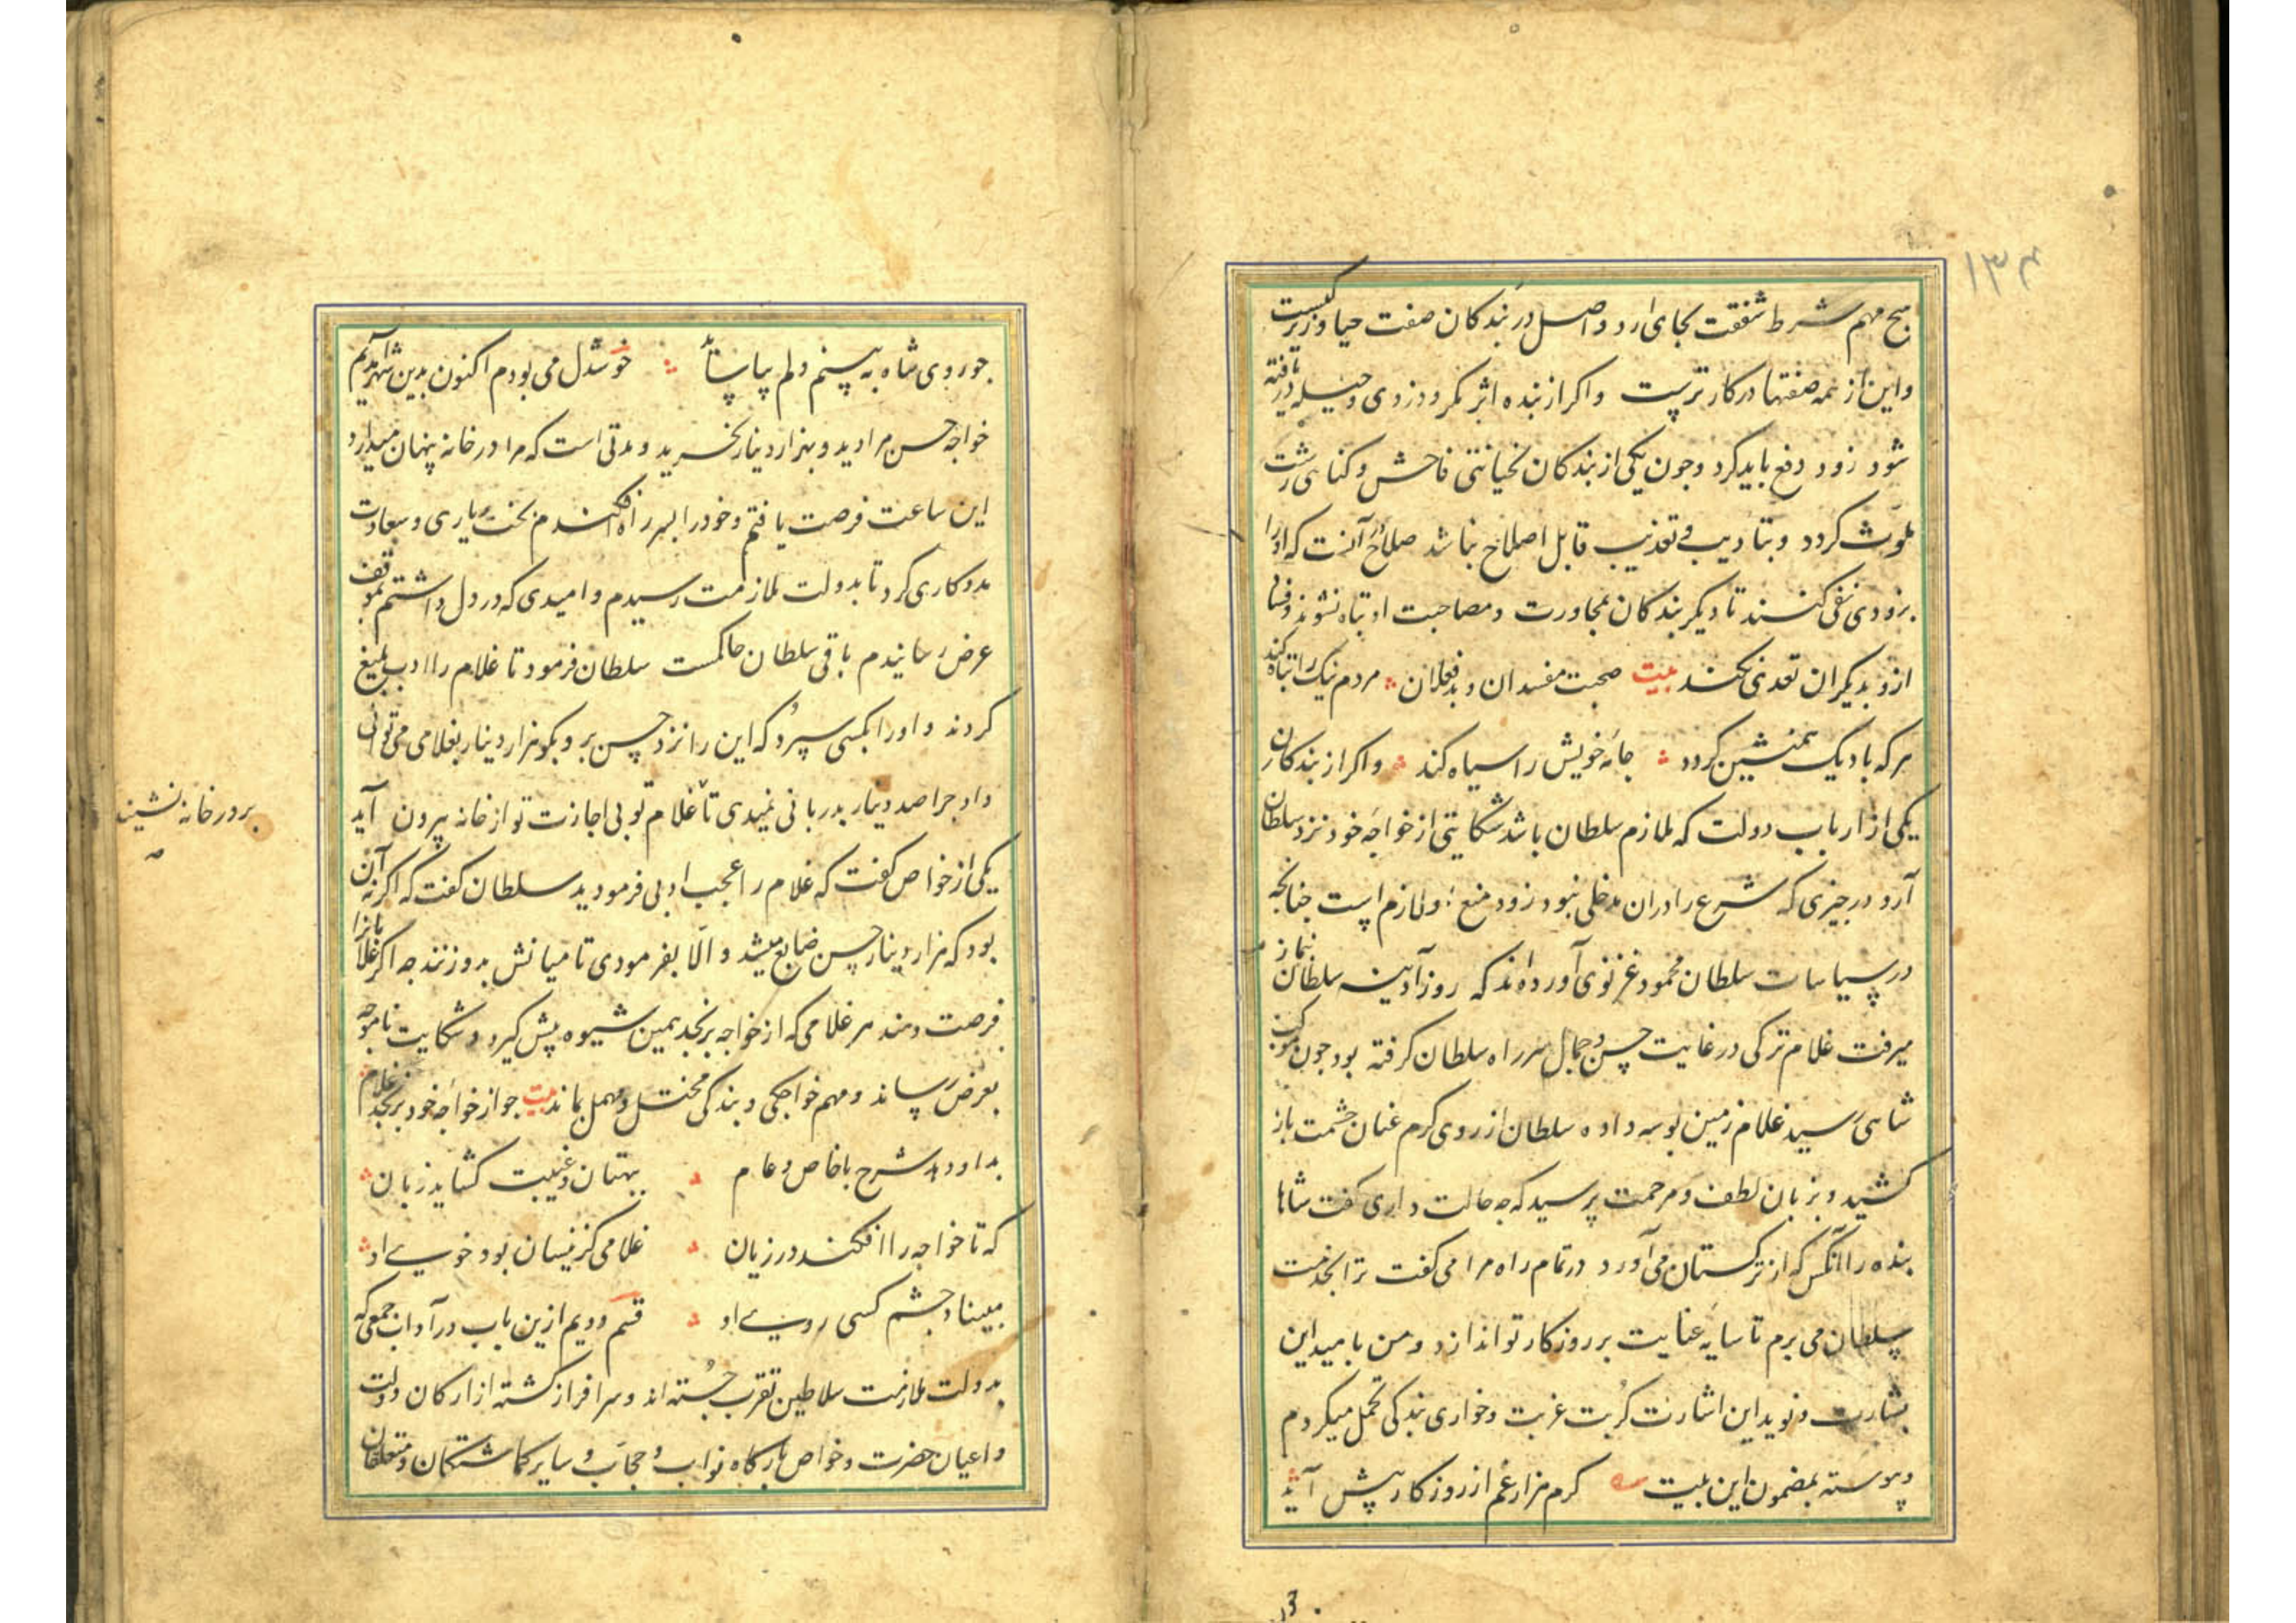 ۱۳۴
هیچ مهم شرط شفقت بجای ارد و اصل در بندکان صفت حیا و زیرکیست
و این از همه صفتها در کارترست و اکر از بنده اثر مکر و دزدی و حیله دریافته
شود زود دفع باید کرد و جون یکی از بندکان بخیانتی فاحش و کناهی زشت
ملوّث کردد و بتادیب و تعذیب قابل اصلاح نباشد صلاح در آنست که او را
بزودی نفی کنند تا دیکر بندکان بمجاورت و مصاحبت او تباه نشوند و فساد
ازو بدیکران تعدی نکند بیت صحبت مفسدان و بدفعلان مردم نیک را تباه کند
هرکه با دیک همنشین کردد جامه خویش را سیاه کند و اکر از بندکان
یکی از ارباب دولت که ملازم سلطان باشد شکایتی از خواجه خود نزد سلطان
آرد در جیزی که شرع را دران مدخلی نبود زود منع او لازم است جنانجه
در سیاسات سلطان محمود غزنوی آورده‌اند که روز آدینه سلطان بنماز
میرفت غلام ترکی در غایت حسن و جمال سر راه سلطان کرفته بود جون موکب
شاهی رسید غلام زمین بوسه داده سلطان از روی کرم عنان حشمت باز
کشید و بزبان لطف و مرحمت پرسید که جه حالت داری کفت شاها
بنده را آنکس که از ترکستان می‌آورد در تمام راه مرا می‌کفت ترا بخدمت
سلطان می برم تا سایه عنایت بر روزکار تو اندازد و من بامید این
بشارت و نوید این اشارت کربت غربت و خواری بندکی تحمل میکردم
و پیوسته بمضمون این بیت کرم هزار غم از روزکار پیش آید
جو روی شاه به بینم دلم بیاساید خوشدل می بودم اکنون بدین شهر آمدیم
خواجه حسن مرا دید و بهزار دینار بخرید و مدتی است که مرا در خانه پنهان میدارد
این ساعت فرصت یافتم و خود را بسر راه افکندم بخت یاری و سعادت
مددکاری کرد تا بدولت ملازمت رسیدم و امیدی که در دل داشتم بموقف
عرض رسانیدم باقی سلطان حاکمست سلطان فرمود تا غلام را ادب بلیغ
کردند و او را بکسی سپرد که این را نزد حسن بر و بکو هزار دینار بغلامی می توانی
داد جرا صد دینار بدربانی نمیدی تا غلام تو بی اجازت تو از خانه بیرون آید
بر در خانه نشیند
یکی از خواص کفت که غلام را عجب ادبی فرمودید سلطان کفت که اکر نه آن
بود که هزار دینار حسن ضایع میشد و الّا بفرمودی تا میانش بدو زنند جه اکر غلامانرا
فرصت دهند هر غلامی که از خواجه برنجد همین شیوه پیش کیرد و شکایت ناموجه
بعرض رساند و مهم خواجکی و بندکی مختل و مهمل بماند بیت جو از خواجه خود برنجد غلام
بد او دهد شرح با خاص و عام ببهتان و غیبت کشاید زبان
که تا خواجه را افکند در زیان غلامی کزینسان بود خوی او
مبیناد جشم کسی روی او قسم دویم ازین باب در آداب جمعی که
بدولت ملازمت سلاطین تقرب جسته اند و سرافراز کشته از ارکان دولت
و اعیان حضرت و خواص بارکاه نواب و حجاب و سایر کماشتکان و متعلقان